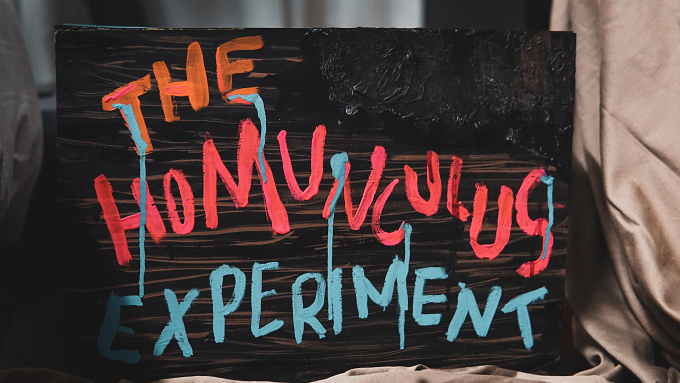 THE
HOMUNCULUS
EXPERIMENT